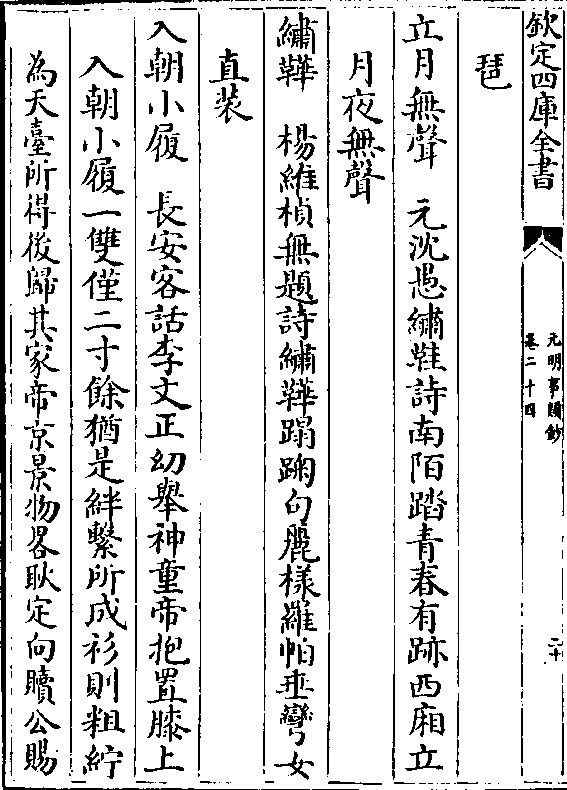 欽定四庫全書
元明事類鈔
卷二十四
二十
琶
立月無聲　元沈愚繡鞋詩南陌踏青春有跡西廂立
月夜無聲
繡鞾　楊維楨無題詩繡鞾蹋踘句麗様羅帕垂彎女
直装
入朝小履　長安客話李文正幼舉神童帝抱置膝上
入朝小履一雙僅二寸餘猶是絆繫所成衫則粗紵
為天臺所得後歸其家帝京景物畧耿定向贖公賜